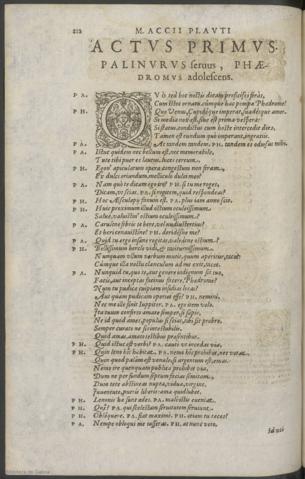 212 M. ACCII PLAVTI
ACTVS PRIMVS.
PALINVRVS seruus, PHÆ-
DROMVS adolescens.
PA. QVò ted hoc noctis dicam proficisci foràs,
Cum istoc ornatu, cúmque hac pompa Phædrome?
PH. Quò Venus, Cupidóque imperat, suadétque amor.
Si media nox est, siue est prima vespera:
Si status, condictus cum hoste intercedit dies,
Tamen est eundum quò imperant, ingratiis.
PA. At tandem tandem. PH. tandem es odiosus mihi.
PA. Istuc quidem nec bellum est, nec memorabile,
Tute tibi puer es lautus, luces cereum.
PH. Egón' apicularum opera congestum non feram,
Ex dulci oriundum, melculo dulci meo?
PA. Nam quò te dicam ego ire? PH. si tu me roges,
Dicam, vt scias. PA. si rogitem, quid respondeas?
PH. Hoc Æsculapij fanum est. PA. plus iam anno scio.
PH. Huic proximum illud ostium oculissimum.
Salue, valuistin' ostium oculissimum?
PA. Caruitne febris te here, vel nudiustertius?
Et heri cœnauistine? PH. deridésne me?
PA. Quid tu ergo insane rogitas, valeatne ostium?
PH. Bellissimum hercle vidi, & taciturnissimum.
Nunquam vllum verbum mutit, quum aperitur, tacet:
Cúmque illa noctu clanculum ad me exit, tacet.
PA. Nunquid tu, quod te, aut genere indignum sit tuo,
Facis, aut inceptas facinus facere, Phædrome?
Num tu pudicæ cuipiam insidias locas?
Aut quam pudicam oportet esse? PH. nemini,
Nec me ille sinit Iuppiter. PA. ego item volo.
Ita tuum conferto amare semper, si sapis,
Ne id quod ames, populus si sciat, tibi sit probro.
Semper curato ne sis intestabilis.
Quod amas, amato testibus præsentibus.
PH. Quid istuc est verbi? PA. cautè vt incedas via.
PH. Quin leno hîc habitat. PA. nemo hîc prohibet, nec vetat
Quin quod palàm est venale, si argentum est, emas.
Nemo ire quenquam publica prohibet via,
Dum ne per fundum septum facias semitam.
Dum tete abstineas nupta, vidua, virgine,
Iuuentute, pueris liberis: ama quidlubet.
PH. Lenonis hæ sunt ædes. PA. malè istis eueniat.
PH. Qui? PA. qui scelestam seruitutem seruiunt.
PH. Obloquere. PA. fiat maximè. PH. etiam tu taces?
PA. Nempe obloqui me iusseras. PH. at nunc veto.